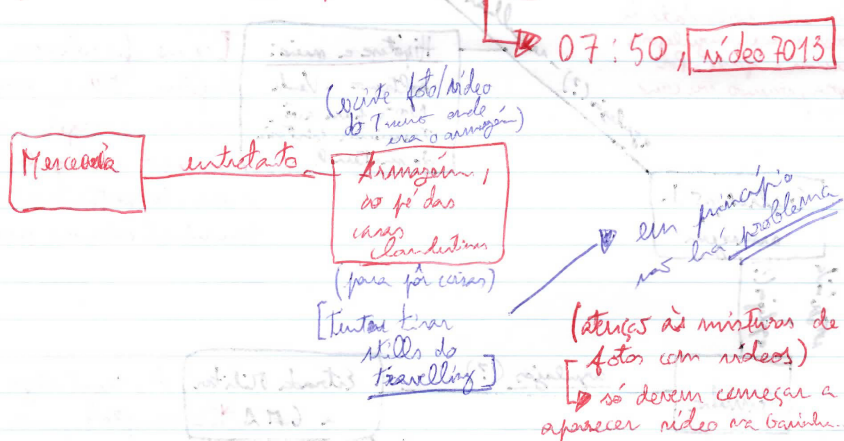 07:50, vídeo 7013
(existe foto/vídeo
do Tnuno onde
era o armazém)
Mercearia
entretanto
Armazém,
ao pé das
casas
clandestinas
(para pôr coisas)
[Tentar tirar
stills do
travelling.]
em princípio
não há problema
(atenção às misturas de
fotos com vídeos)
só devem começar a
aparecer vídeo na